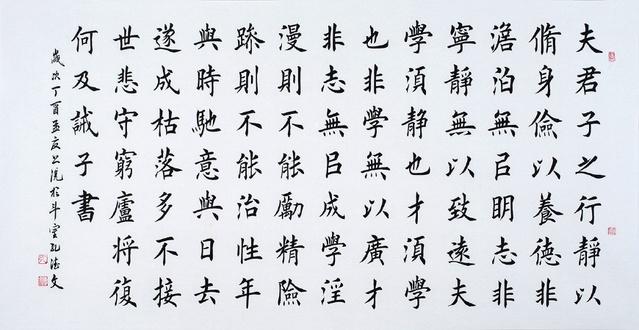 夫君子之行靜以
脩身儉以養德非
澹泊無㠯明志非
寧靜無以致遠夫
學湏靜也才湏學
也非學無以廣才
非志無㠯成學淫
漫則不能勵精險
躁則不能治性年
與時馳意與日去
遂成枯落多不接
世悲守窮廬將復
何及誡子書
歲次丁酉孟夏上浣於斗室孔德文